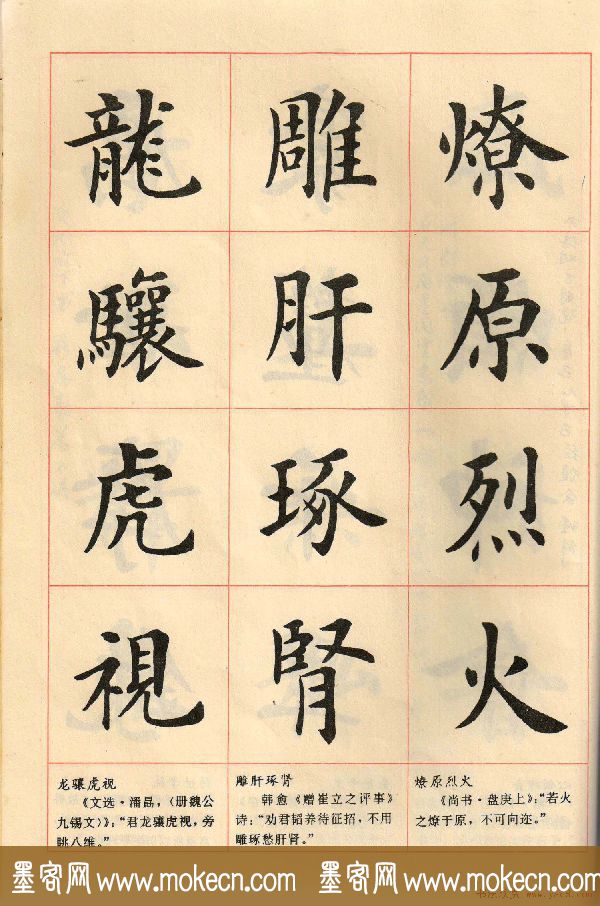 燎原烈火
雕肝琢肾
龍驤虎視
燎原烈火
《尚书·盘庚上》:“若火
之燎于原,不可向迩。”
雕肝琢肾
韩愈《赠崔立之评事》
诗:“劝君韬养待征招,不用
雕琢愁肝肾。”
龙骧虎视
《文选·潘勗,(册魏公
九锡文)》:“君龙骧虎视,旁
眺八维。”
墨客网 www.mokecn.com 墨客网 www.mokecn.com